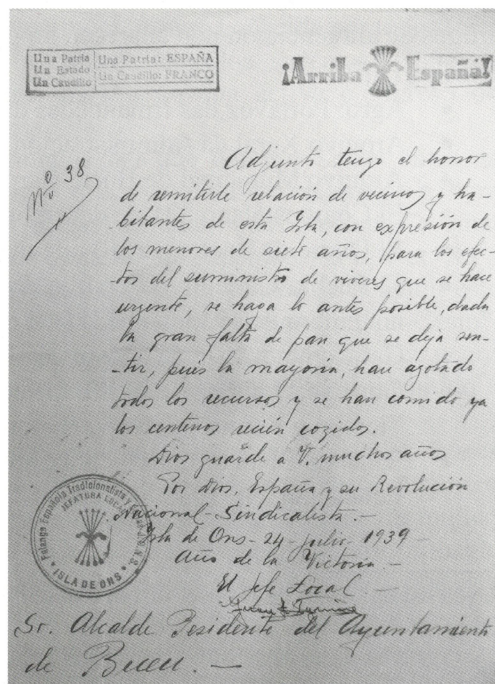 Una Patria
Un Estado
Un Caudillo
Una Patria: ESPAÑA
Un Caudillo: FRANCO
¡Arriba España!
Nº 38
Adjunto tengo el honor
de remitirle relación de vecinos y ha-
bitantes de esta Isla, con expresión de
los menores de siete años, para los efec-
tos del suministro de viveres que se hace
urgente, se haga lo antes posible, dada
la gran falta de pan que se deja sen-
-tir, pues la mayoria, han agotado
todos los recursos y se han comido ya
los centenos recién cogidos.
Dios guarde a V. muchos años
Por Dios, España y su Revolución
Nacional-Sindicalista.-
Isla de Ons- 24- julio 1939-
Año de la Victoria.-
El Jefe Local.-
Falange Española Tradicionalista y
JEFATURA LOCAL
ISLA DE ONS
Sr. Alcalde Presidente del Ayuntamiento
de Bueu.-